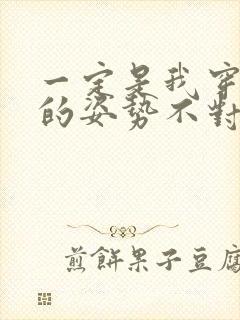 一定是我穿
的姿势不對
煎餅果子豆腐